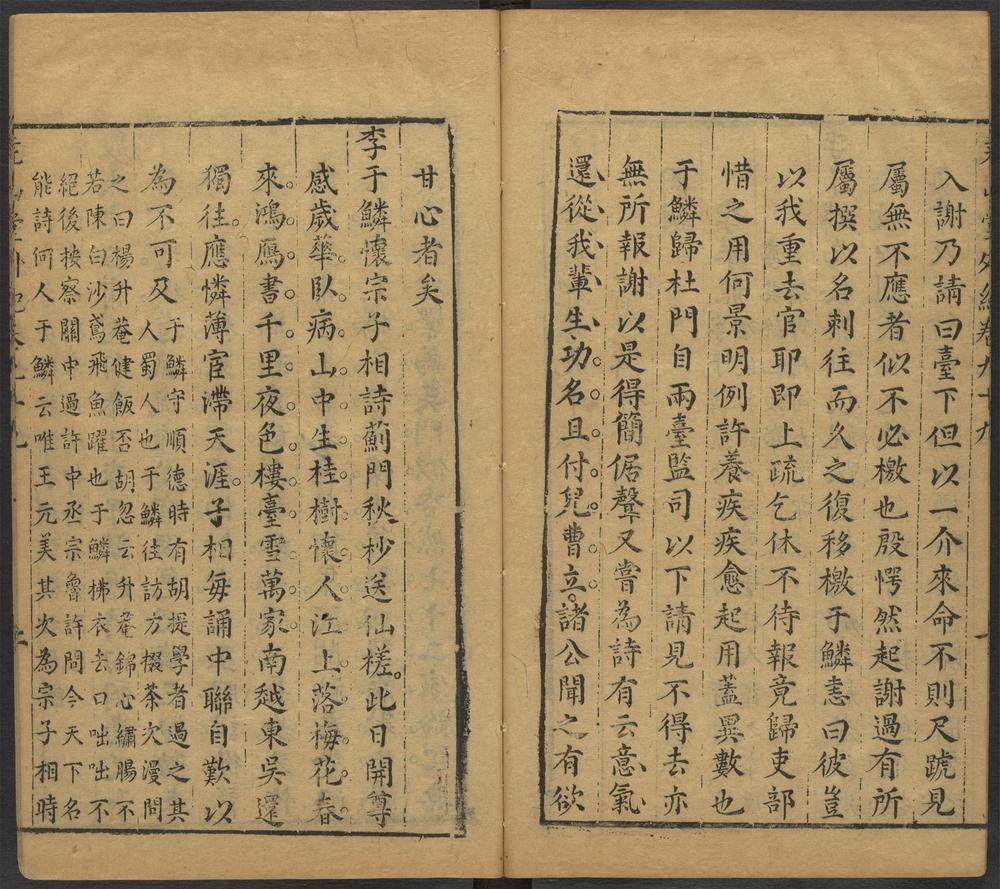 堯山堂外紀卷九十九
入謝乃請曰臺下但以一介來命不則尺號見
屬無不應者似不必檄也殷愕然起謝過有所
屬撰以名刺往而久之復移檄于鱗恚曰彼豈
以我重去官耶即上疏乞休不待報竟歸吏部
惜之用何景明例許養疾疾愈起用蓋異數也
于鱗歸杜門自兩臺監司以下請見不得去亦
無所報謝以是得簡倨聲又嘗為詩有云意氣
還從我輩生功名且付兒曹立諸公聞之有欲
甘心者矣
李于鱗懷宗子相詩薊門秋杪送仙槎此日開尊
感歲華臥病山中生桂樹懷人江上落梅花春
來鴻鴈書千里夜色樓臺雪萬家南越東吳還
獨往應憐薄宦滯天涯子相每誦中聯自歎以
為不可及
于鱗守順德時有胡提學者過之其
人蜀人也于鱗往訪方掇茶次漫問
之曰楊升菴健飯否胡忽云升菴錦心繡腸不
若陳白沙鳶飛魚躍也于鱗拂衣去口咄咄不
絕後按察關中過許中丞宗魯許問今天下名
能詩何人于鱗云唯王元美其次為宗子相時